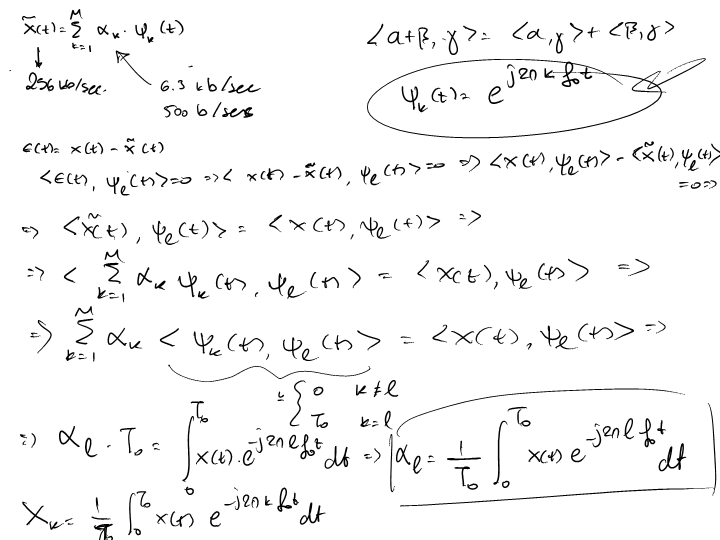 x̃(t) = Σ_{k=1}^{M} α_k · ψ_k(t)
256 kb/sec.
6.3 kb/sec
500 b/sec
<α+β, γ> = <α,γ> + <β,γ>
ψ_k(t) = e^{j2πk f₀t}
ε(t) = x(t) - x̃(t)
<ε(t), ψ_ℓ(t)> = 0 => < x(t) - x̃(t), ψ_ℓ(t)> = 0 => <x(t), ψ_ℓ(t)> - <x̃(t), ψ_ℓ(t)> = 0 =>
=> <x̃(t), ψ_ℓ(t)> = <x(t), ψ_ℓ(t)> =>
=> < Σ_{k=1}^{M} α_k ψ_k(t), ψ_ℓ(t) > = <x(t), ψ_ℓ(t)> =>
=> Σ_{k=1}^{M} α_k < ψ_k(t), ψ_ℓ(t) > = <x(t), ψ_ℓ(t)> =>
= { 0 k≠ℓ
T₀ k=ℓ
=> α_ℓ · T₀ = ∫_0^{T₀} x(t) · e^{-j2πℓ f₀t} dt => α_ℓ = 1/T₀ ∫_0^{T₀} x(t) e^{-j2πℓ f₀t} dt
X_k = 1/T₀ ∫_0^{T₀} x(t) e^{-j2πk f₀t} dt